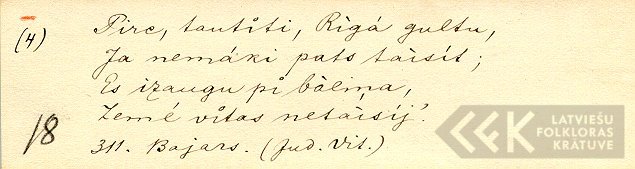 (4) Pirc, tautīti, Rīgā gultu,
Ja nemāki pats tàisît;
Es izaugu pi bāliņa,
Zemē vitas netàisīj'.
18
311. Bajars. (Jud. Vit.)
LATVIEŠU
FOLKLORAS
KRĀTUVE